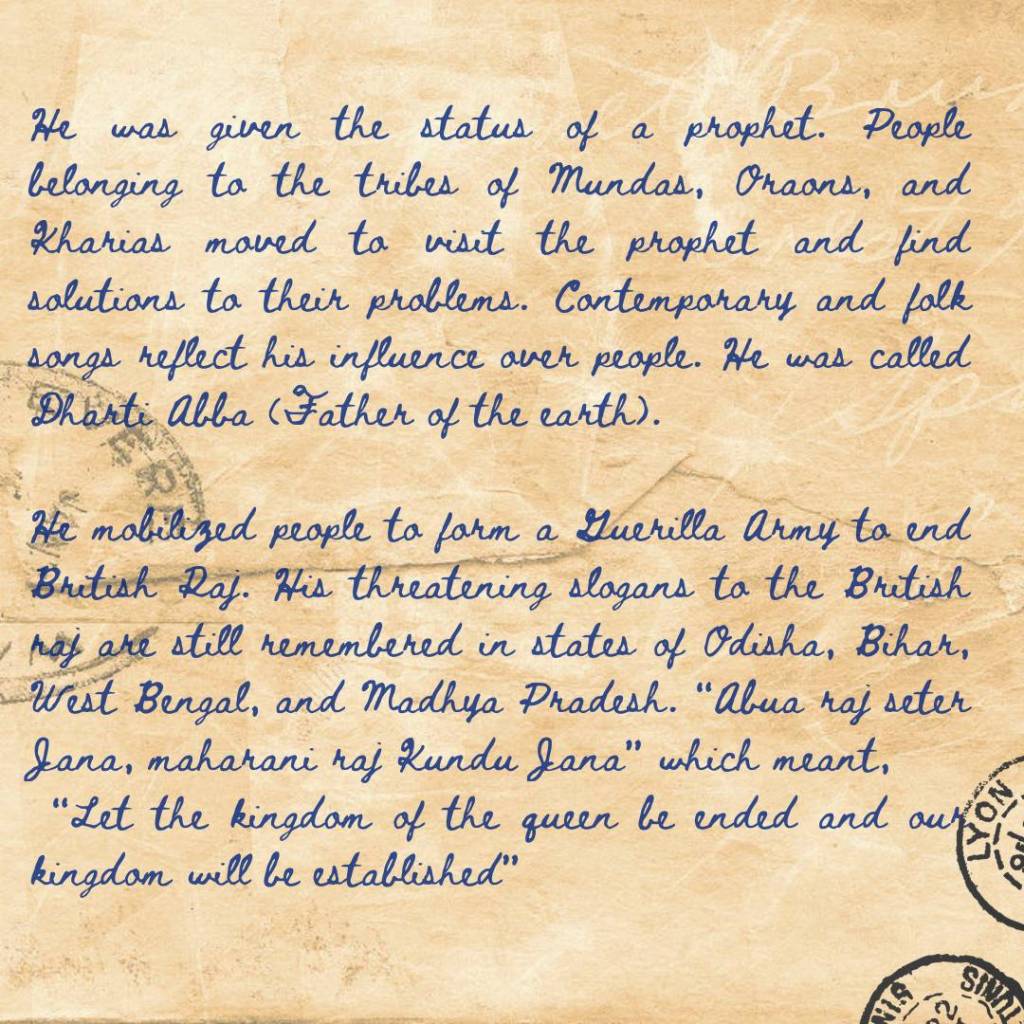 He was given the status of a prophet. People
belonging to the tribes of Mundas, Oraons, and
Kharias moved to visit the prophet and find
solutions to their problems. Contemporary and folk
songs reflect his influence over people. He was called
Dharti Abba (Father of the earth).
He mobilized people to form a Guerilla Army to end
British Raj. His threatening slogans to the British
raj are still remembered in states of Odisha, Bihar,
West Bengal, and Madhya Pradesh. “Abua raj seter
Jana, maharani raj Kundu Jana” which meant,
“Let the kingdom of the queen be ended and our
kingdom will be established”
LYON